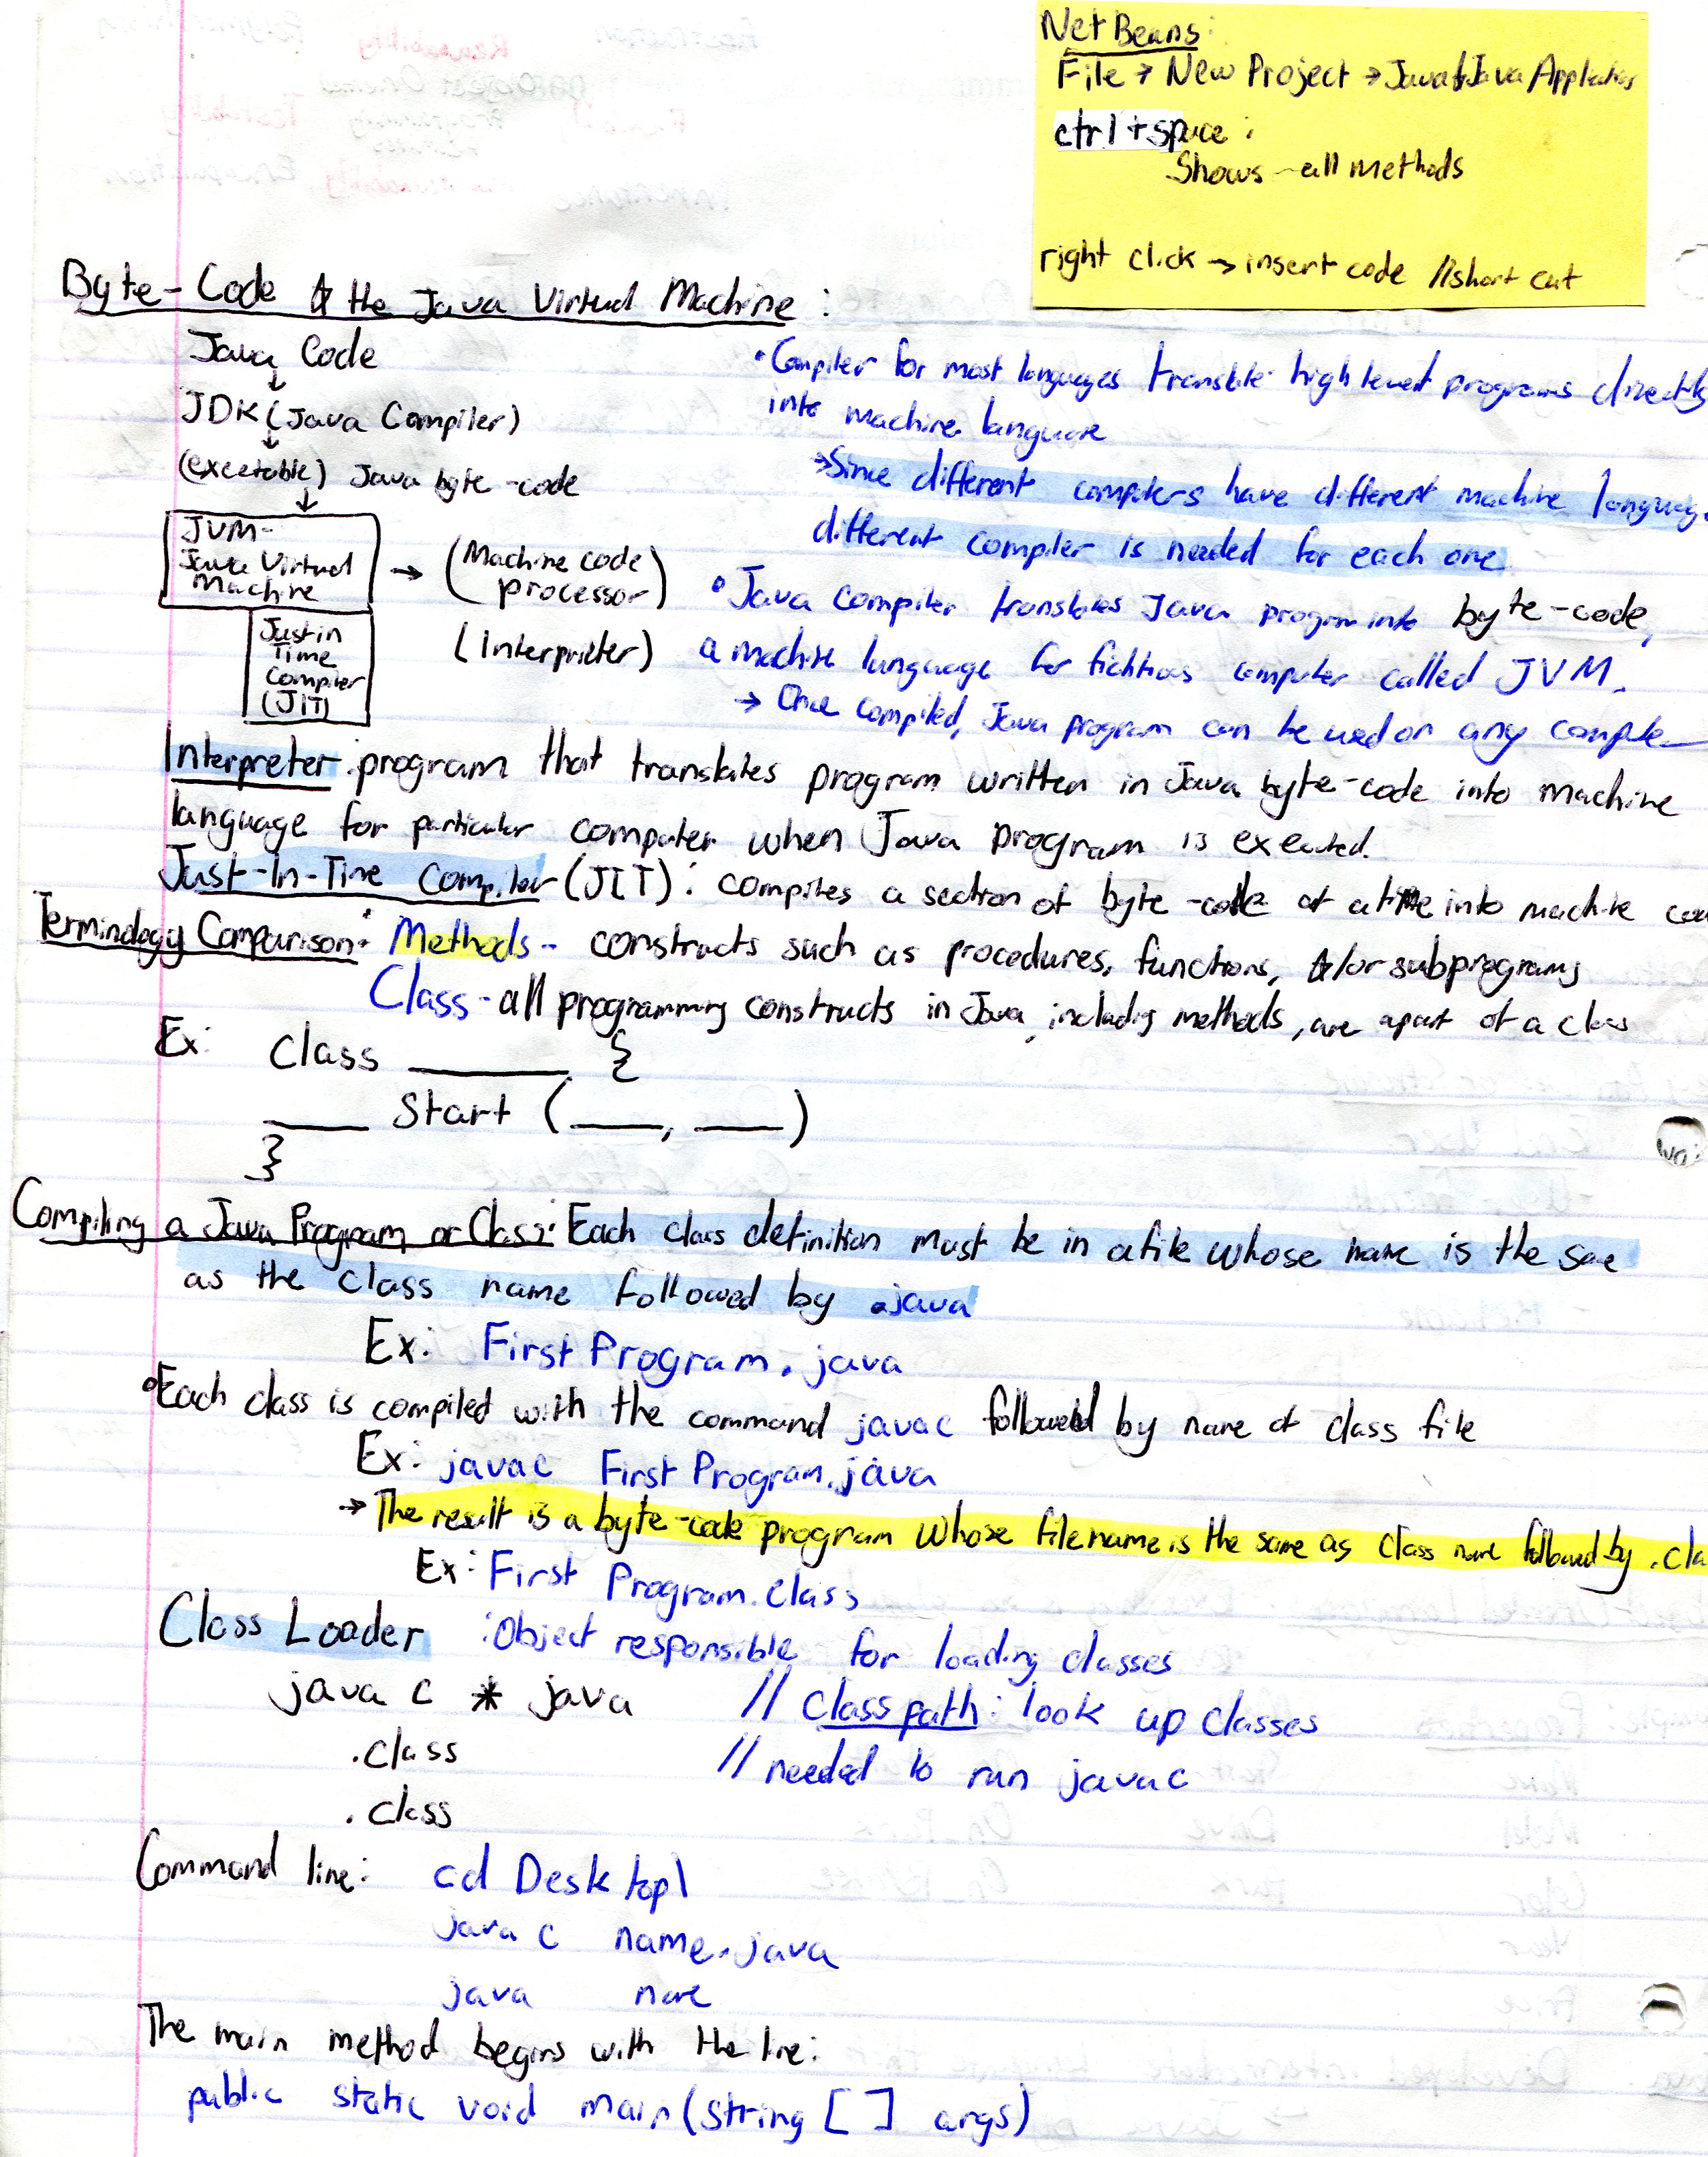 NetBeans:
File → New Project → Java → Java Application
ctrl + space :
Shows - all methods
right click → insert code //short cut
Byte-Code & the Java Virtual Machine :
Java Code
↓
JDK (Java Compiler)
↓
(exectable) Java byte-code
↓
JVM-
Java Virtual
Machine
→ (Machine code
processor)
Just in
Time
Compiler
(JIT)
(Interpreter)
• Compiler for most languages translate high level programs directly
into machine language
→ Since different computers have different machine language
different compiler is needed for each one
• Java compiler translates Java program into byte-code,
a machine language for fictitious computer called JVM.
→ Once compiled, Java program can be used on any computer
Interpreter: program that translates program written in Java byte-code into machine
language for particular computer when Java program is executed.
Just-In-Time Compiler (JIT): compiles a section of byte-code at a time into machine
Terminology Comparison: Methods - constructs such as procedures, functions, &/or subprograms
Class - all programming constructs in Java, including methods, are apart of a class
Ex: Class ____ {
____ Start (____, ____)
}
Compiling a Java Program or Class: Each class definition must be in a file whose name is the same
as the class name followed by .java
Ex: FirstProgram.java
• Each class is compiled with the command javac followed by name of class file
Ex: javac FirstProgram.java
→ The result is a byte-code program whose filename is the same as class name followed by .cla
Ex: First Program.class
Class Loader : Object responsible for loading classes
javac * java // Class path: look up classes
.class // needed to run javac
.class
Command line: cd Desktop\
javac name.java
java name
The main method begins with the line:
public static void main(String [ ] args)